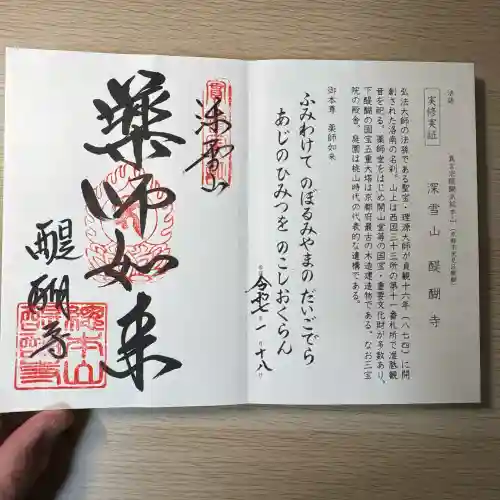 法語
実修実証
真言宗醍醐派総本山(京都市伏見区醍醐)
深雪山 醍醐寺
弘法大師の法孫である聖宝・理源大師が貞観十六年(八七四)に開
創された洛南の名刹。山上は西国三十三所の第十一番札所で准胝観
音を祀る。薬師堂をはじめ開山堂等の国宝・重要文化財が多数あり、
下醍醐の国宝五重大塔は京都府最古の木造建造物である。なお三宝
院の殿舎、庭園は桃山時代の代表的な遺構である。
御本尊 薬師如来
ふみわけて のぼるみやまの だいごでら
あじのひみつを のこしおくらん
令和七 一 月 十八 日
深雪山
薬師如来
醍醐寺
総本山
醍醐寺